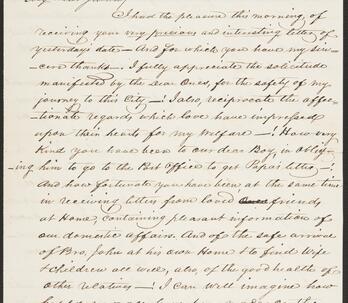 I had the pleasure this morning, of
receiving your very precious and interesting letter of
yesterday's date — And for which you have my sin-
cere thanks — I fully appreciate the solicitude
manifested by the dear Ones, for the safety of my
journey to this City —! I also reciprocate the affec-
tionate regards which love have impressed
upon their hearts for my welfare —! How very
kind you have been to our dear Boy, in oblig-
ing him to go to the Post Office to get Papa's letter —!
And how fortunate you have been at the same time
in receiving letters from loved friends
at Home, containing pleasant information of
our domestic affairs. And of the safe arrive
of Bro. John at his own Home & to find Wife
& children all well, also, of the good health of
other relatives —! I can well imagine how